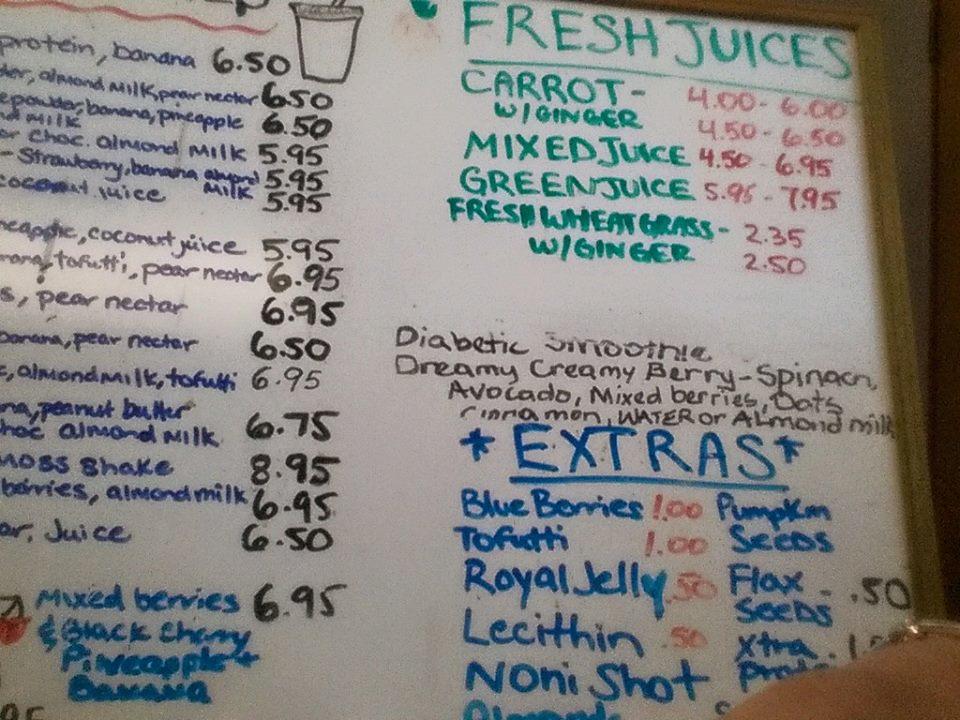 protein, banana 6.50
almond milk, pear nectar 6.50
powder, banana, pineapple 6.50
milk
or choc. almond milk 5.95
- Strawberry, banana almond milk 5.95
coconut juice 5.95
coconut juice 5.95
tofutti, pear nectar 6.95
pear nectar 6.95
banana, pear nectar 6.50
almond milk, tofutti 6.95
peanut butter
choc almond milk 6.75
moss shake 8.95
berries, almond milk 6.95
Juice 6.50
Mixed berries 6.95
& Black Cherry
Pineapple +
Banana
FRESH JUICES
CARROT - 4.00 - 6.00
W/GINGER 4.50 - 6.50
MIXED JUICE 4.50 - 6.95
GREEN JUICE 5.95 - 7.95
FRESH WHEATGRASS - 2.35
W/GINGER 2.50
Diabetic Smoothie
Dreamy Creamy Berry - Spinach,
Avocado, Mixed berries, Oats,
cinnamon, WATER or Almond milk
* EXTRAS *
Blue Berries 1.00 Pumpkin
Tofutti 1.00 Seeds
Royal Jelly .50 Flax - .50
Seeds
Lecithin .50 Xtra
Noni Shot